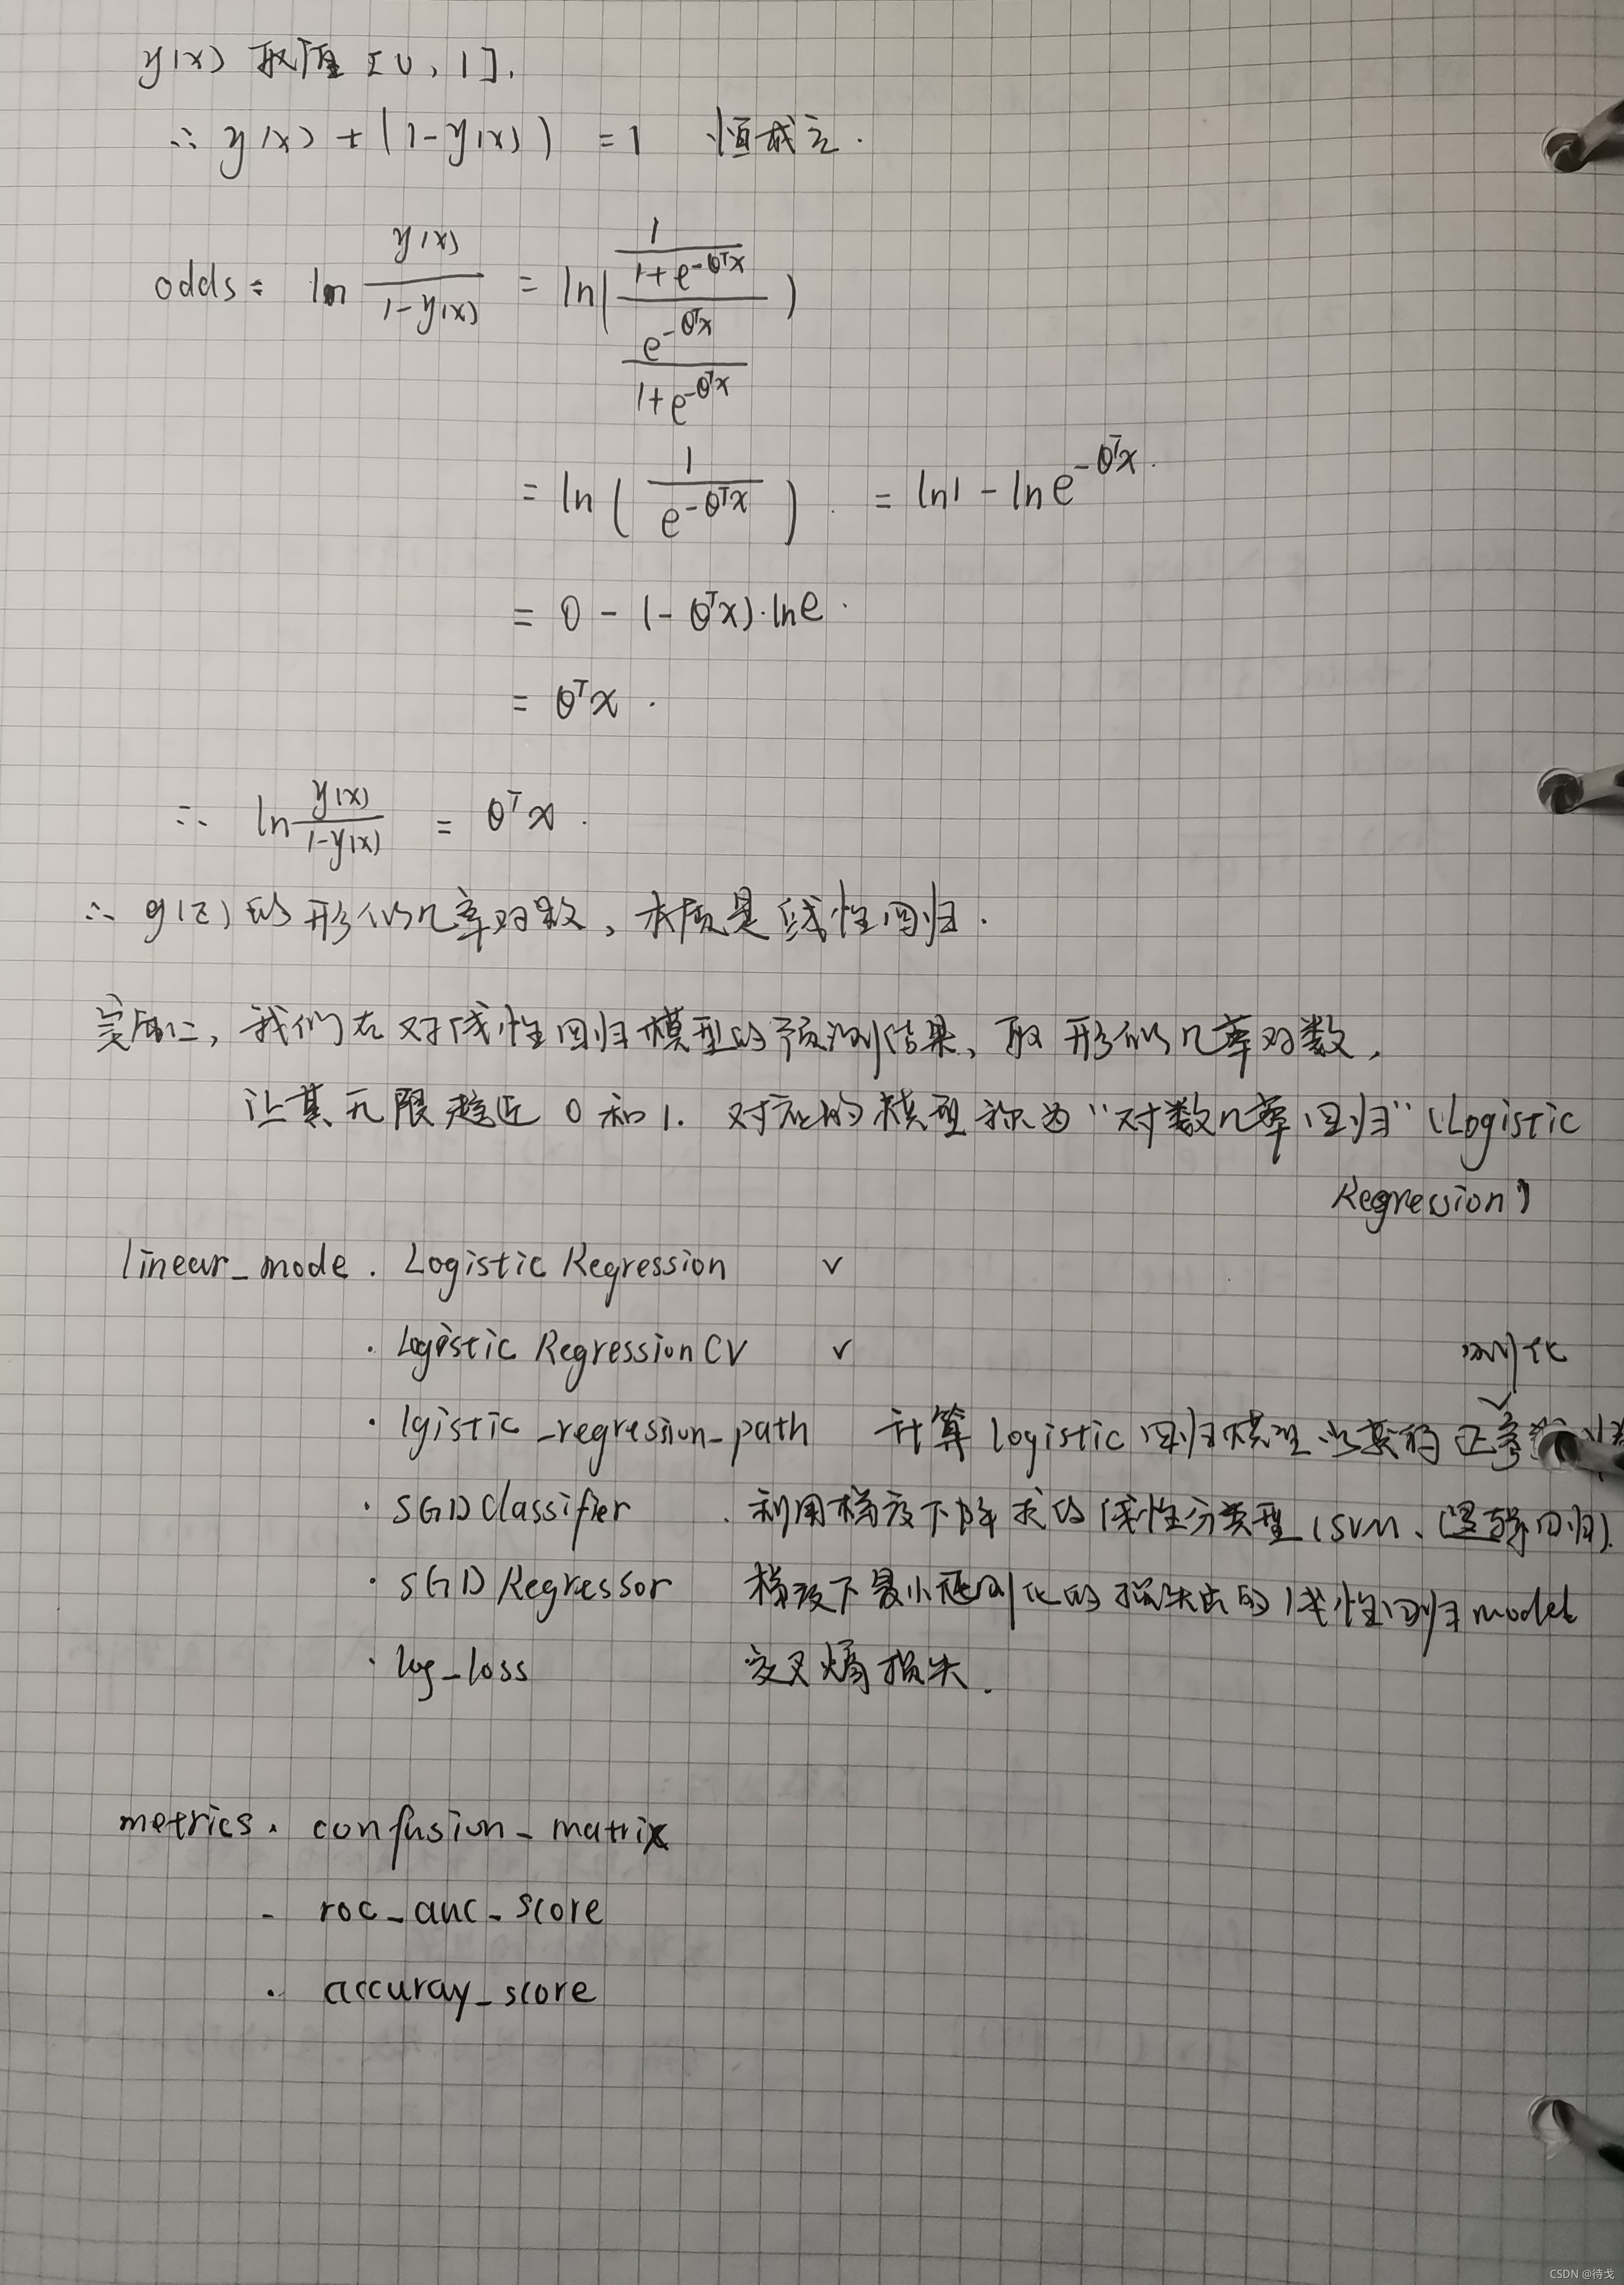 y(x) 取值 [0, 1].
∴ y(x) + (1-y(x)) = 1 恒成立.
odds = ln y(x) / 1-y(x) = ln( 1 / 1+e^-θᵀx / e^-θᵀx / 1+e^-θᵀx )
= ln( 1 / e^-θᵀx ) = ln1 - lne^-θᵀx.
= 0 - (-θᵀx)·lne.
= θᵀx.
∴ ln y(x) / 1-y(x) = θᵀx.
∴ g(z) 的形似几率对数, 本质是线性回归.
我们在对线性回归模型的预测结果, 取形似几率对数,
让其无限趋近 0 和 1. 对应的模型称为 "对数几率回归" (Logistic
Regression)
linear_mode. Logistic Regression ∨
. Logistic RegressionCV ∨
则化
. lgistic_regression_path 计算 logistic 回归模型 的 正
. SGDClassifier . 利用梯度下降求的线性分类型 (SVM、逻辑回归).
. SGDRegressor 梯度下最小 则化的损失出的线性回归 model
. log_loss 交叉熵损失.
metrics. confusion_matrix
- roc_auc_score
. accuray_score
CSDN @待戈